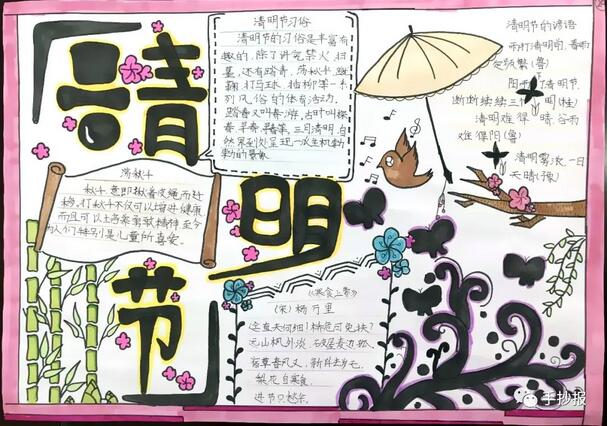 清明节
清明节习俗
清明节的习俗是丰富有
趣的,除了讲究禁火、扫
墓,还有踏青、荡秋千、蹴
鞠、打马球、插柳等一系
列风俗的体育活动。
踏青又叫春游,古时叫探
春、寻春等。三月清明,自
然界到处呈现一派生机勃
勃的景象
荡秋千
秋千,意即揪着皮绳而迁
移。打秋千不仅可以增进健康
而且可以培养勇敢精神,至今
为人们特别是儿童所喜爱。
清明节的谚语
雨打清明前,春雨
定频繁(鲁)
阳雨 了清明节
断断续续三个 (桂)
清明难得晴,谷雨
难得阳(鲁)
清明雾浓,一日
天晴(豫)
《寒食上冢》
(宋)杨万里
迳直夫何细!桥危可免扶?
远山枫外淡,破屋麦边孤。
宿草春风又,新阡去岁无。
梨花自寒食,
进节只愁余。
手抄报